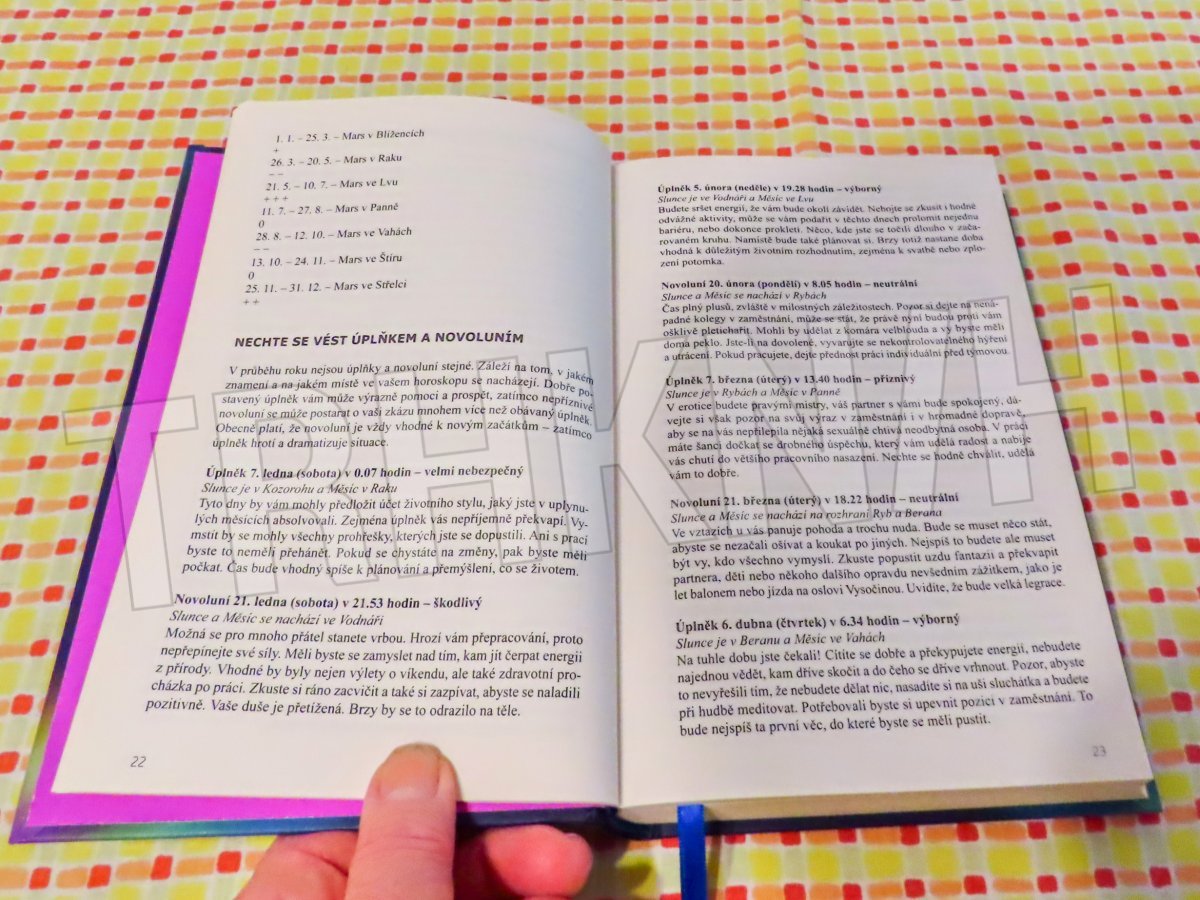 1. 1. – 25. 3. – Mars v Blížencích
+
26. 3. – 20. 5. – Mars v Raku
– –
21. 5. – 10. 7. – Mars ve Lvu
+ + +
11. 7. – 27. 8. – Mars v Panně
0
28. 8. – 12. 10. – Mars ve Vahách
– –
13. 10. – 24. 11. – Mars ve Štíru
0
25. 11. – 31. 12. – Mars ve Střelci
+ +
NECHTE SE VÉST ÚPLŇKEM A NOVOLUNÍM
V průběhu roku nejsou úplňky a novoluní stejné. Záleží na tom, v jakém
znamení a na jakém místě ve vašem horoskopu se nacházejí. Dobře po-
stavený úplněk vám může výrazně pomoci a prospět, zatímco nepříznivé
novoluní se může postarat o vaši zkázu mnohem více než obávaný úplněk.
Obecně platí, že novoluní je vždy vhodné k novým začátkům – zatímco
úplněk hrotí a dramatizuje situace.
Úplněk 7. ledna (sobota) v 0.07 hodin – velmi nebezpečný
Slunce je v Kozorohu a Měsíc v Raku
Tyto dny by vám mohly předložit účet životního stylu, jaký jste v uplynu-
lých měsících absolvovali. Zejména úplněk vás nepříjemně překvapí. Vy-
mstít by se mohly všechny prohřešky, kterých jste se dopustili. Ani s prací
byste to neměli přehánět. Pokud se chystáte na změny, pak byste měli
počkat. Čas bude vhodný spíše k plánování a přemýšlení, co se životem.
Novoluní 21. ledna (sobota) v 21.53 hodin – škodlivý
Slunce a Měsíc se nachází ve Vodnáři
Možná se pro mnoho přátel stanete vrbou. Hrozí vám přepracování, proto
nepřepínejte své síly. Měli byste se zamyslet nad tím, kam jít čerpat energii
z přírody. Vhodné by byly nejen výlety o víkendu, ale také zdravotní pro-
cházka po práci. Zkuste si ráno zacvičit a také si zazpívat, abyste se naladili
pozitivně. Vaše duše je přetížená. Brzy by se to odrazilo na těle.
22
Úplněk 5. února (neděle) v 19.28 hodin – výborný
Slunce je ve Vodnáři a Měsíc ve Lvu
Budete sršet energií, že vám bude okolí závidět. Nebojte se zkusit i hodně
odvážné aktivity, může se vám podařit v těchto dnech prolomit nejednu
bariéru, nebo dokonce prokletí. Něco, kde jste se točili dlouho v zača-
rovaném kruhu. Namístě bude také plánovat si. Brzy totiž nastane doba
vhodná k důležitým životním rozhodnutím, zejména k svatbě nebo zplo-
zení potomka.
Novoluní 20. února (pondělí) v 8.05 hodin – neutrální
Slunce a Měsíc se nachází v Rybách
Čas plný plusů, zvláště v milostných záležitostech. Pozor si dejte na nená-
padné kolegy v zaměstnání, může se stát, že právě nyní budou proti vám
ošklivě pletichařit. Mohli by udělat z komára velblouda a vy byste měli
doma peklo. Jste-li na dovolené, vyvarujte se nekontrolovatelného hýření
a utrácení. Pokud pracujete, dejte přednost práci individuální před týmovou.
Úplněk 7. března (úterý) v 13.40 hodin – příznivý
Slunce je v Rybách a Měsíc v Panně
V erotice budete pravými mistry, váš partner s vámi bude spokojený, dá-
vejte si však pozor na svůj výraz v zaměstnání i v hromadné dopravě,
aby se na vás nepřilepila nějaká sexuálně chtivá neodbytná osoba. V práci
máte šanci dočkat se drobného úspěchu, který vám udělá radost a nabije
vás chutí do většího pracovního nasazení. Nechte se hodně chválit, udělá
vám to dobře.
Novoluní 21. března (úterý) v 18.22 hodin – neutrální
Slunce a Měsíc se nachází na rozhraní Ryb a Berana
Ve vztazích u vás panuje pohoda a trochu nuda. Bude se muset něco stát,
abyste se nezačali ošívat a koukat po jiných. Nejspíš to budete ale muset
být vy, kdo všechno vymyslí. Zkuste popustit uzdu fantazii a překvapit
partnera, děti nebo někoho dalšího opravdu nevšedním zážitkem, jako je
let balonem nebo jízda na oslovi Vysočinou. Uvidíte, že bude velká legrace.
Úplněk 6. dubna (čtvrtek) v 6.34 hodin – výborný
Slunce je v Beranu a Měsíc ve Vahách
Na tuhle dobu jste čekali! Cítíte se dobře a překypujete energií, nebudete
najednou vědět, kam dříve skočit a do čeho se dříve vrhnout. Pozor, abyste
to nevyřešili tím, že nebudete dělat nic, nasadíte si na uši sluchátka a budete
při hudbě meditovat. Potřebovali byste si upevnit pozici v zaměstnání. To
bude nejspíš ta první věc, do které byste se měli pustit.
23
TRHKNIH